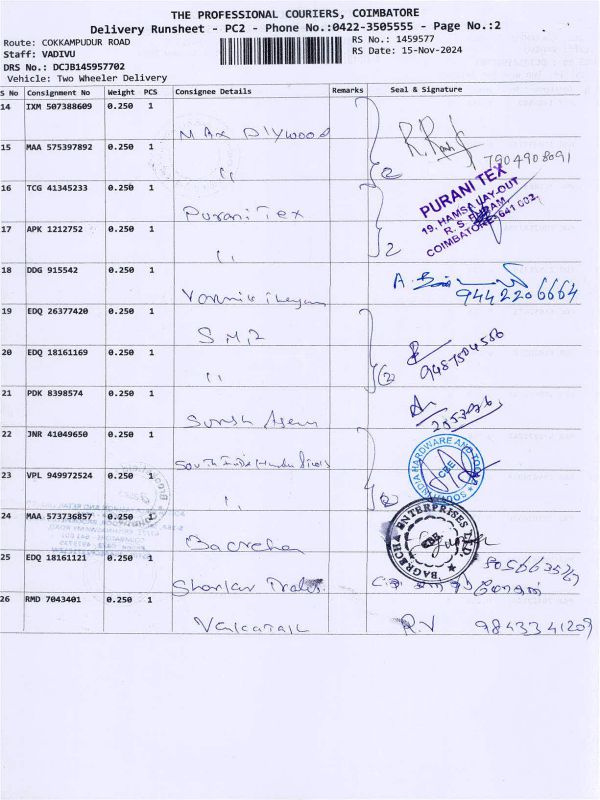 THE PROFESSIONAL COURIERS, COIMBATORE
Delivery Runsheet - PC2 - Phone No.:0422-3505555 - Page No.:2
Route: COKKAMPUDUR ROAD
RS No.: 1459577
Staff: VADIVU
RS Date: 15-Nov-2024
DRS No.: DCJB145957702
Vehicle: Two Wheeler Delivery
S No Consignment No Weight PCS Consignee Details Remarks Seal & Signature
14 IXM 507388609 0.250 1
Max Plywood
7904908091
15 MAA 575397892 0.250 1
" 2
16 TCG 41345233 0.250 1
Purani Tex
PURANI TEX
19, HAMSA LAY-OUT
R. S. PURAM,
COIMBATORE-641 002.
17 APK 1212752 0.250 1
" 2
18 DDG 915542 0.250 1
9442206664
19 EDQ 26377420 0.250 1
20 EDQ 18161169 0.250 1
" 2
21 PDK 8398574 0.250 1
22 JNR 41049650 0.250 1
South India
SOUTH INDIA HARDWARE AND TOOLS
CBE
23 VPL 949972524 0.250 1
" 2
24 MAA 573736857 0.250 1
Bagrecha
BAGRECHA ENTERPRISES LTD.
CBE
25 EDQ 18161121 0.250 1
Shankar
26 RMD 7043401 0.250 1
Venkatesh
R.V 9843341209